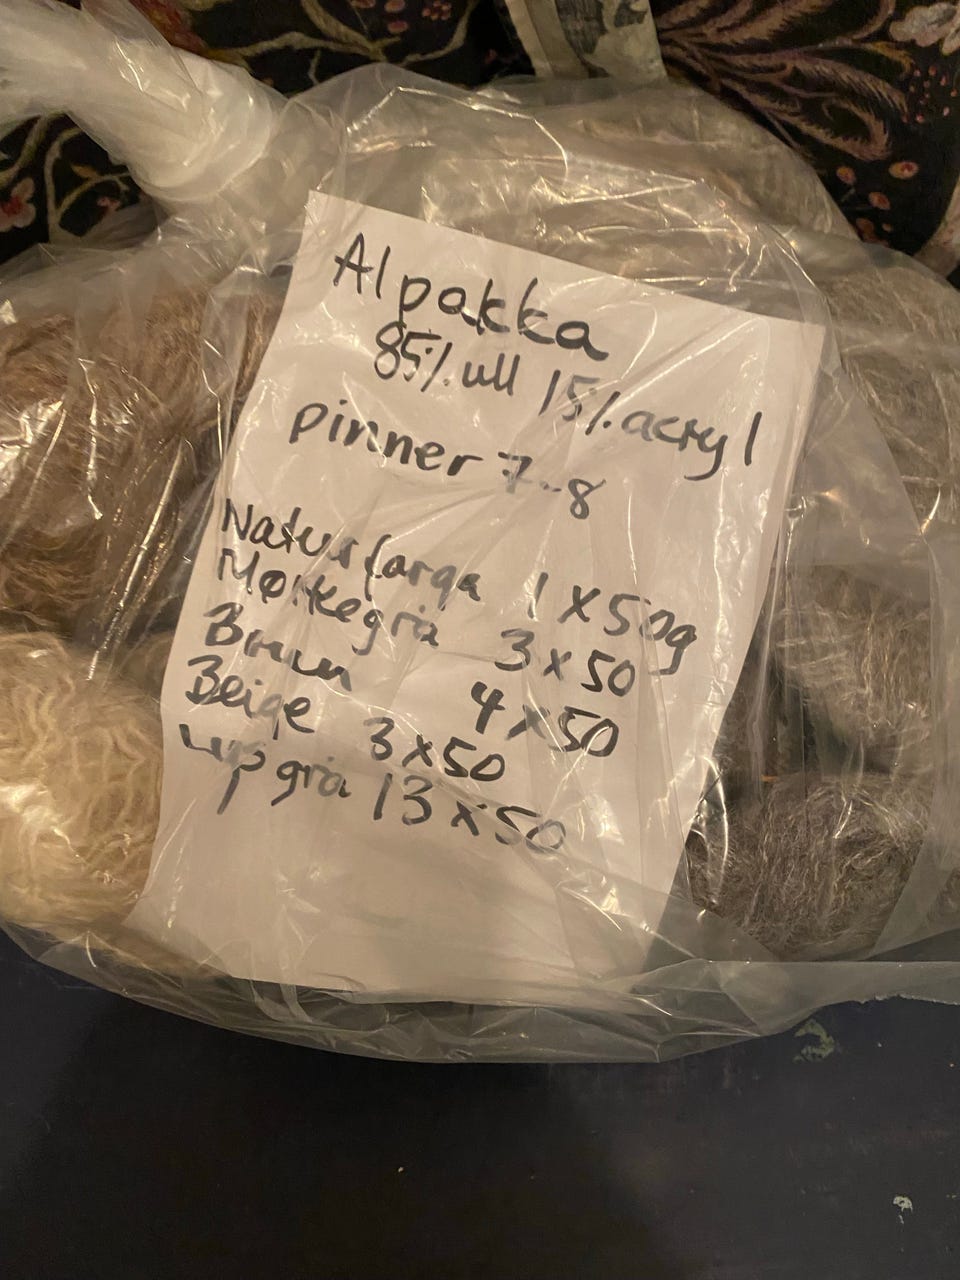 Alpakka
85% ull 15% acryl
pinner 7-8
Naturfarga 1 x 50g
Mørkegrå 3 x 50
Brun 4 x 50
Beige 3 x 50
Lys grå 13 x 50